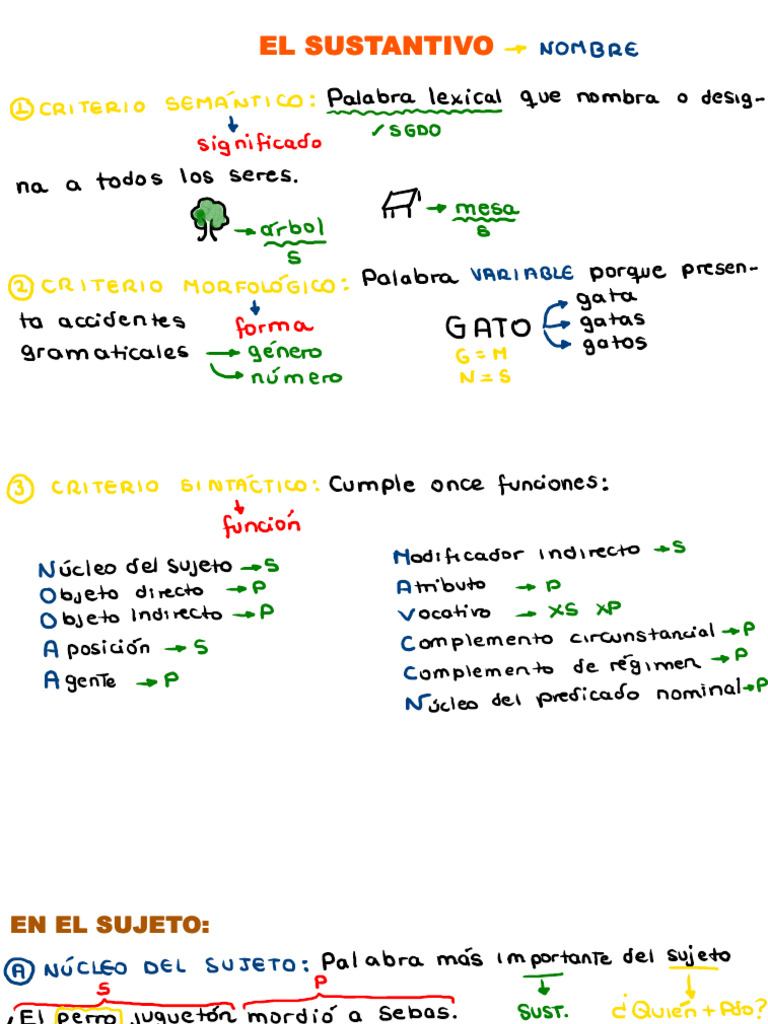 EL SUSTANTIVO → NOMBRE
① CRITERIO SEMÁNTICO: Palabra lexical que nombra o desig-
significado
✓SGDO
na a todos los seres.
→ árbol
S
→ mesa
S
② CRITERIO MORFOLÓGICO: Palabra VARIABLE porque presen-
ta accidentes
forma
gramaticales → género
número
GATO
G = M
N = S
gata
gatas
gatos
③ CRITERIO SINTÁCTICO: Cumple once funciones:
función
Núcleo del sujeto → S
Objeto directo → P
Objeto Indirecto → P
Aposición → S
Agente → P
Modificador indirecto → S
Atributo → P
Vocativo → XS XP
Complemento circunstancial → P
Complemento de régimen → P
Núcleo del predicado nominal → P
EN EL SUJETO:
Ⓐ NÚCLEO DEL SUJETO: Palabra más importante del sujeto
S P
El perro juguetón mordió a Sebas.
SUST.
¿Quién + Pdo?